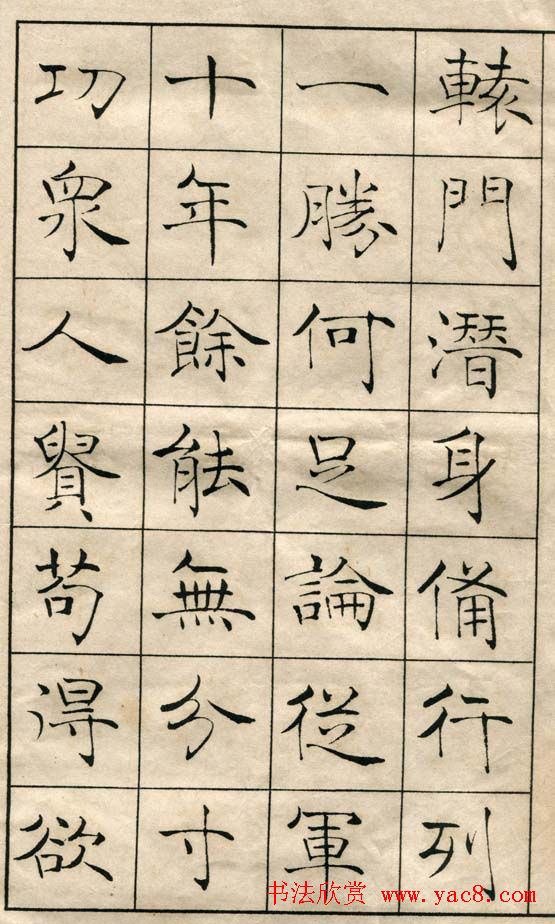 轅門潜身備行列
一勝何足論從軍
十年餘能無分寸
功衆人貴苟得欲
书法欣赏 www.yac8.com